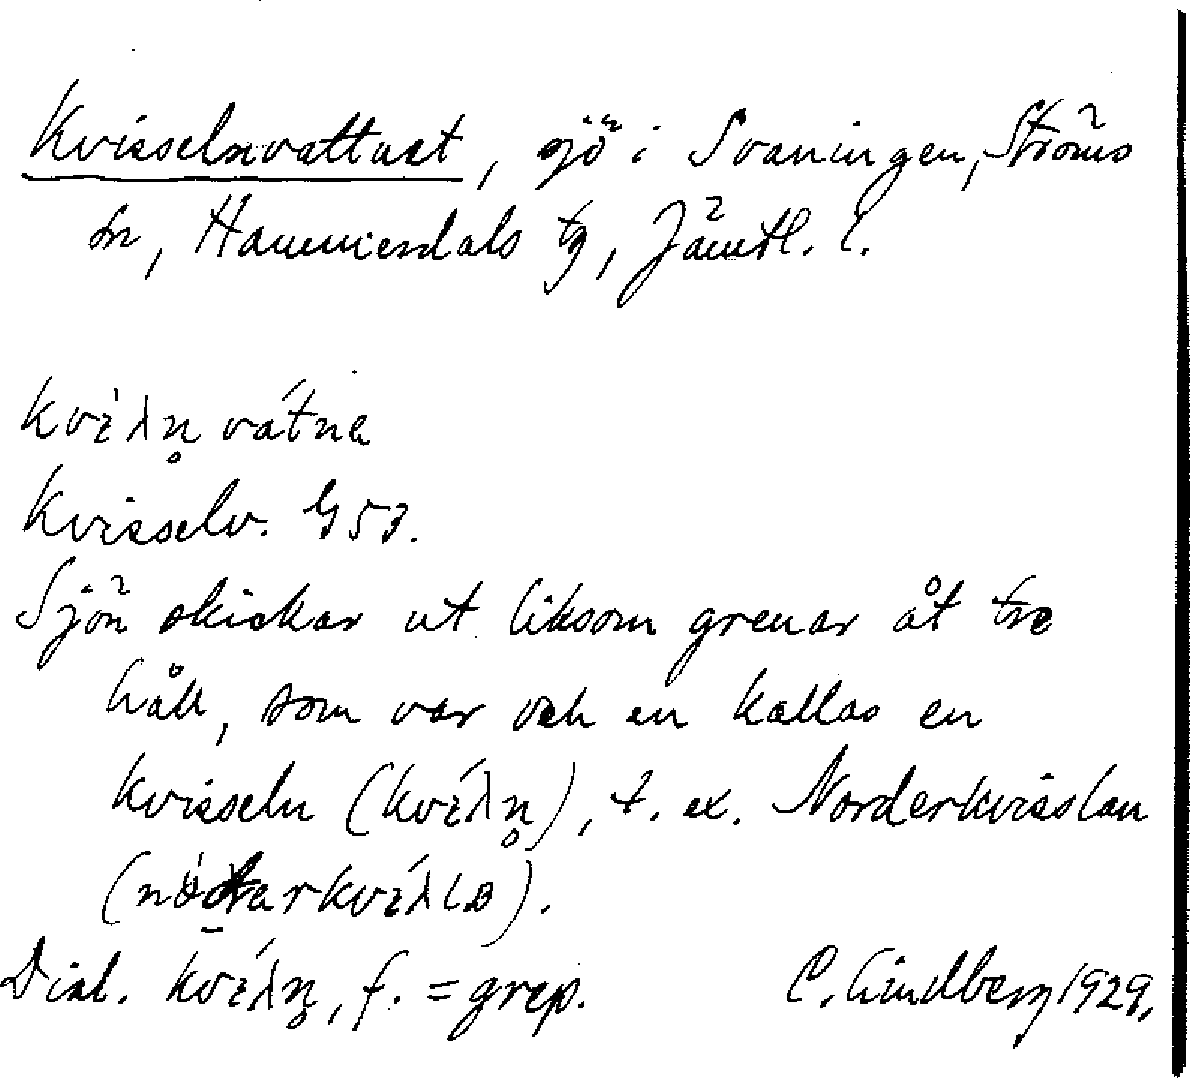 Kvisselnvattnet, sjö i Svaningen, Ströms
sn, Hammerdals tg, Jämtl. l.
kvɛ̀λn̥ vátna
Kvisselv. G 53.
Sjön skickar ut liksom grenar åt tre
håll, som var och en kallas en
kvisseln (kvɛ́λn̥), t. ex. Norderkvisslan
Dial. kvɛ́λn̥, f. = grep. C. Lindberg 1929.